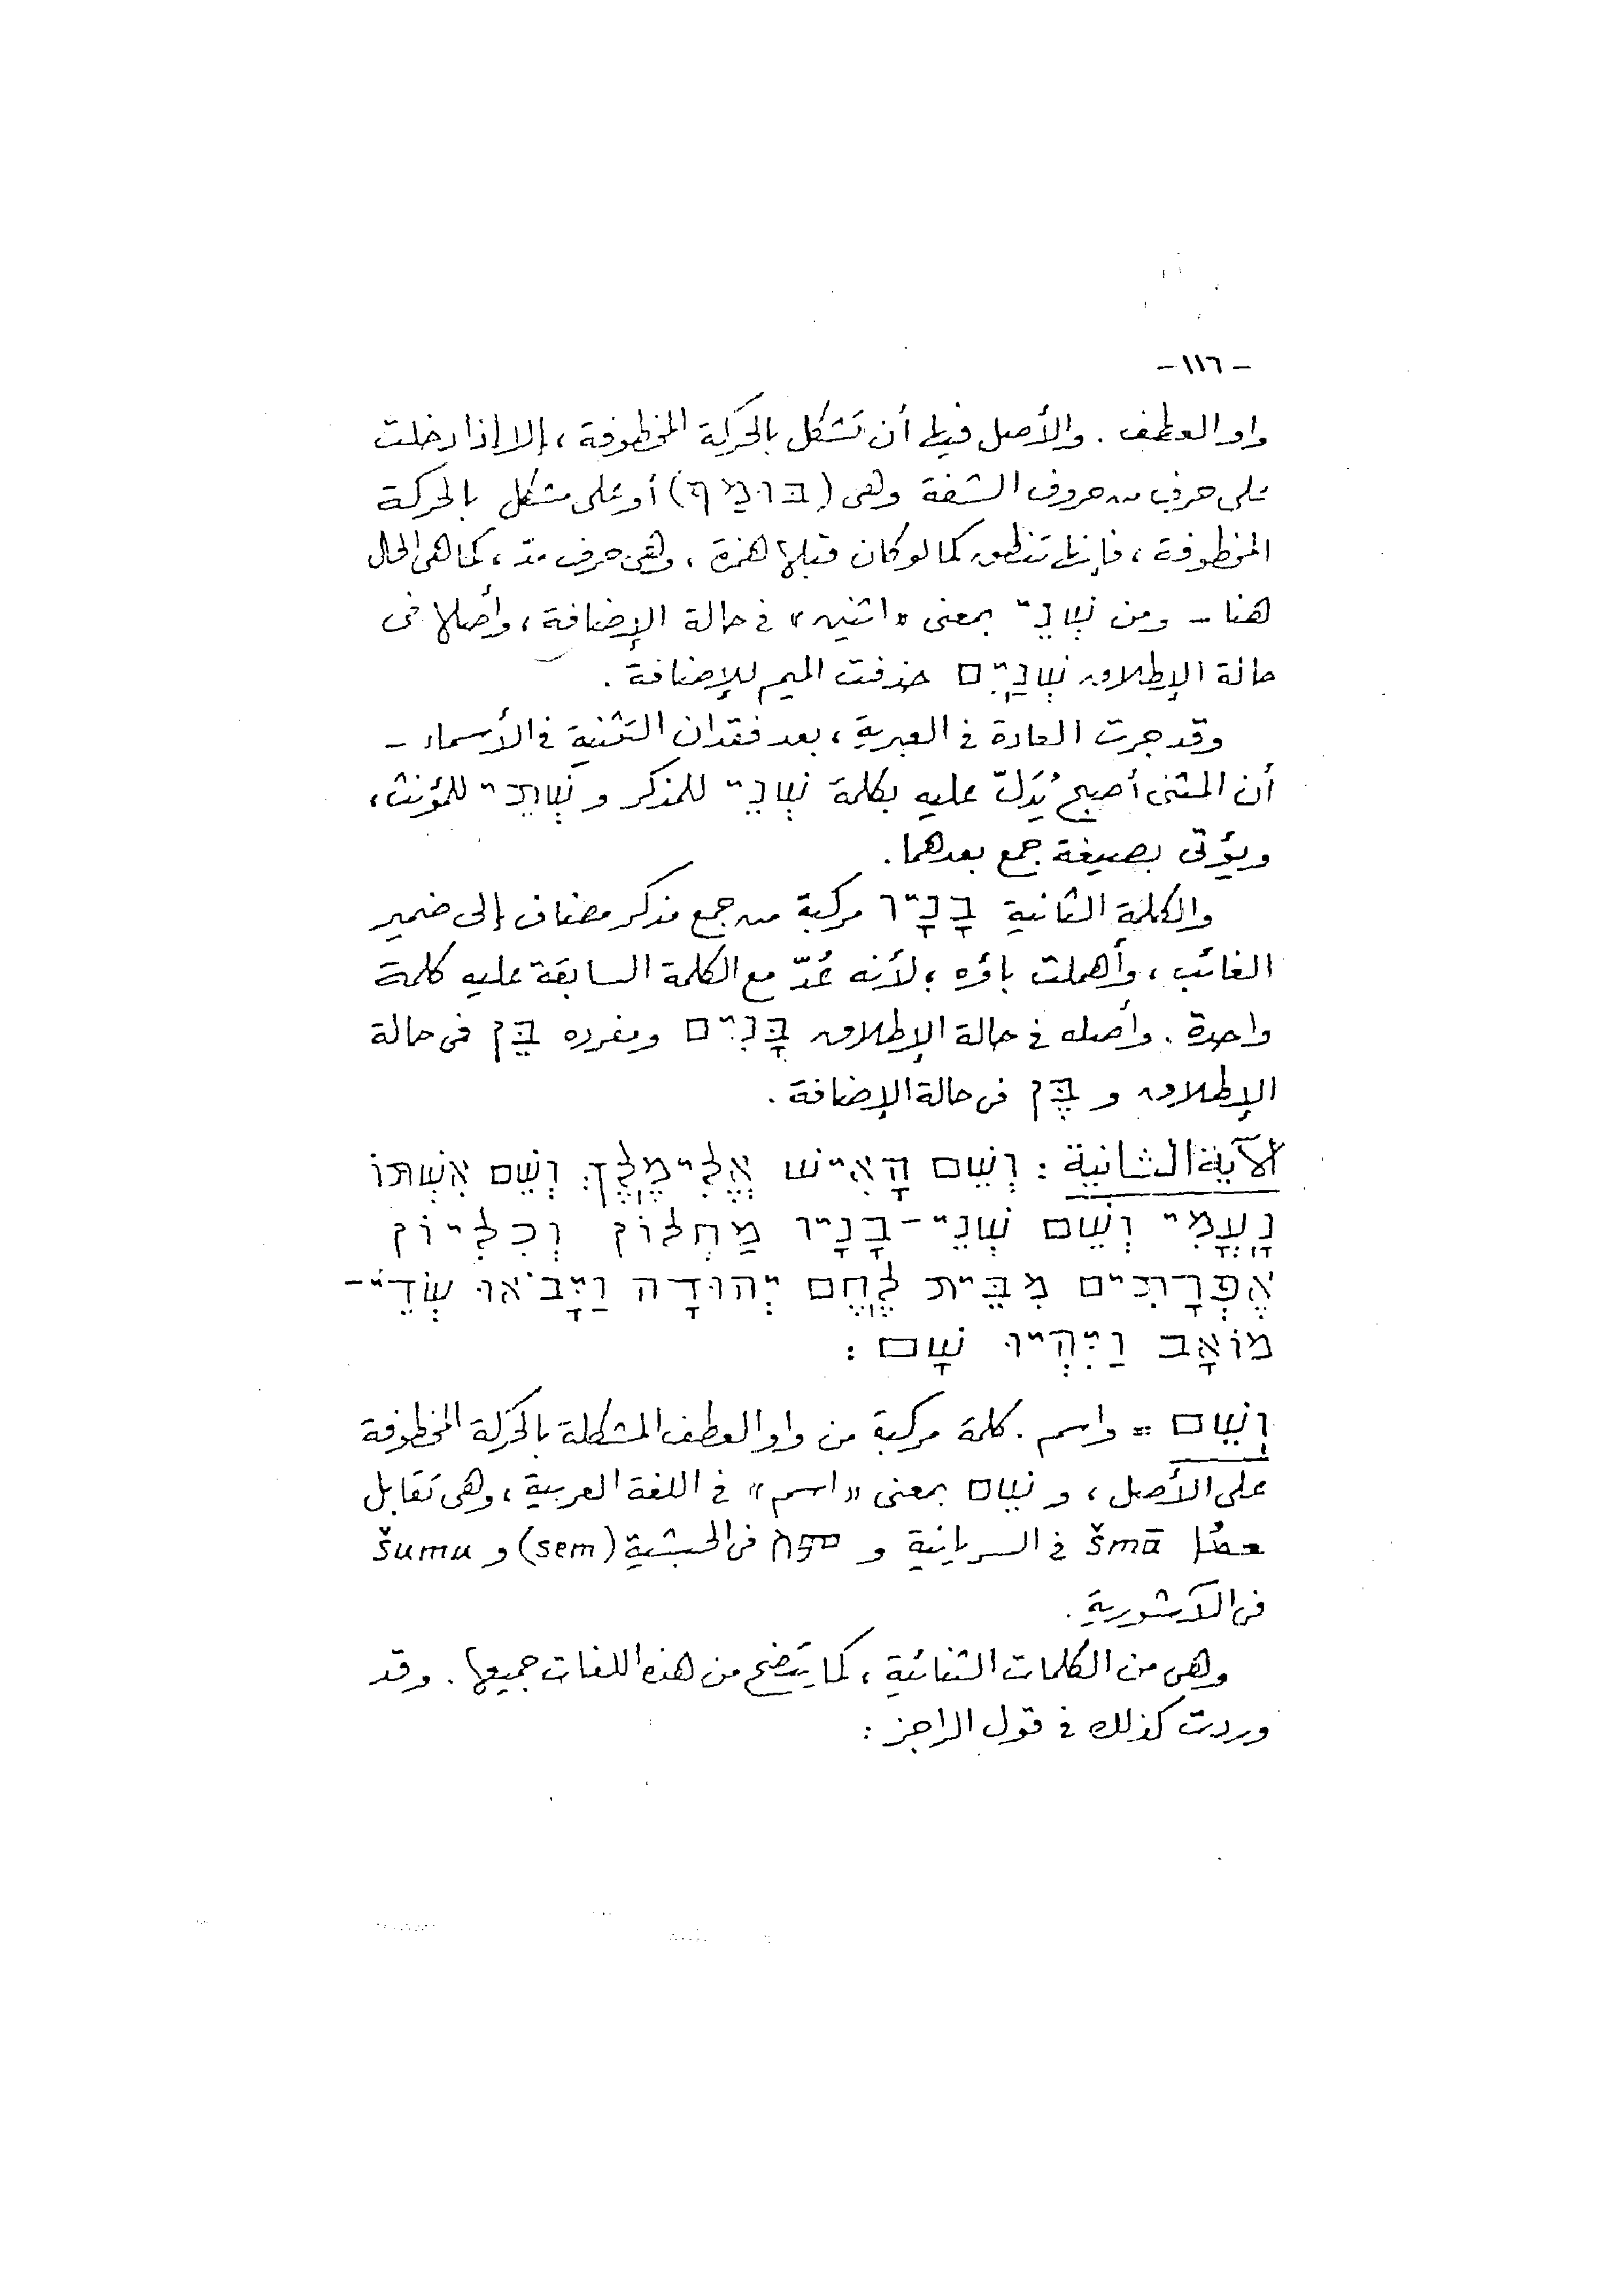 - ١١٦ -
واو العطف. والأصل فيها أن تشكل بالحركة المخطوفة، إلا إذا دخلت
على حرف من حروف الشفة وهى (בומף) أو على مشكل بالحركة
المخطوفة، فإنها تنطق كما لو كان قبلها همزة، وهى حرف مدّ، كما هى الحال
هنا - ومن שְׁנֵי بمعنى «اثنين» فى حالة الإضافة، وأصلها فى
حالة الإطلاق שְׁנַיִם حذفت الميم للإضافة.
وقد جرت العادة فى العبرية، بعد فقدان التثنية فى الأسماء -
أن المثنى أصبح يُدَلّ عليه بكلمة שְׁנֵי للمذكر و שְׁתֵּי للمؤنث،
ويؤتى بصيغة جمع بعدهما.
والكلمة الثانية בָנָיו مركبة من جمع مذكر مضاف إلى ضمير
الغائب، وأهملت باؤه؛ لأنه عُدّ مع الكلمة السابقة عليه كلمة
واحدة. وأصله فى حالة الإطلاق בָּנִים ومفرده בֵּן فى حالة
الإطلاق و בֶּן فى حالة الإضافة.
الآية الثانية: וְשֵׁם הָאִישׁ אֱלִימֶלֶךְ וְשֵׁם אִשְׁתּוֹ
נָעֳמִי וְשֵׁם שְׁנֵי-בָנָיו מַחְלוֹן וְכִלְיוֹן
אֶפְרָתִים מִבֵּית לֶחֶם יְהוּדָה וַיָּבֹאוּ שְׂדֵי-
מוֹאָב וַיִּהְיוּ שָׁם:
וְשֵׁם = واسم. كلمة مركبة من واو العطف المشكلة بالحركة المخطوفة
على الأصل، و שֵׁם بمعنى «اسم» فى اللغة العربية، وهى تقابل
ܫܡܐ šmā فى السريانية و ስም فى الحبشية (sem) و šumu
فى الآشورية.
وهى من الكلمات الثنائية، كما يتضح من هذه اللغات جميعها. وقد
وردت كذلك فى قول الراجز: